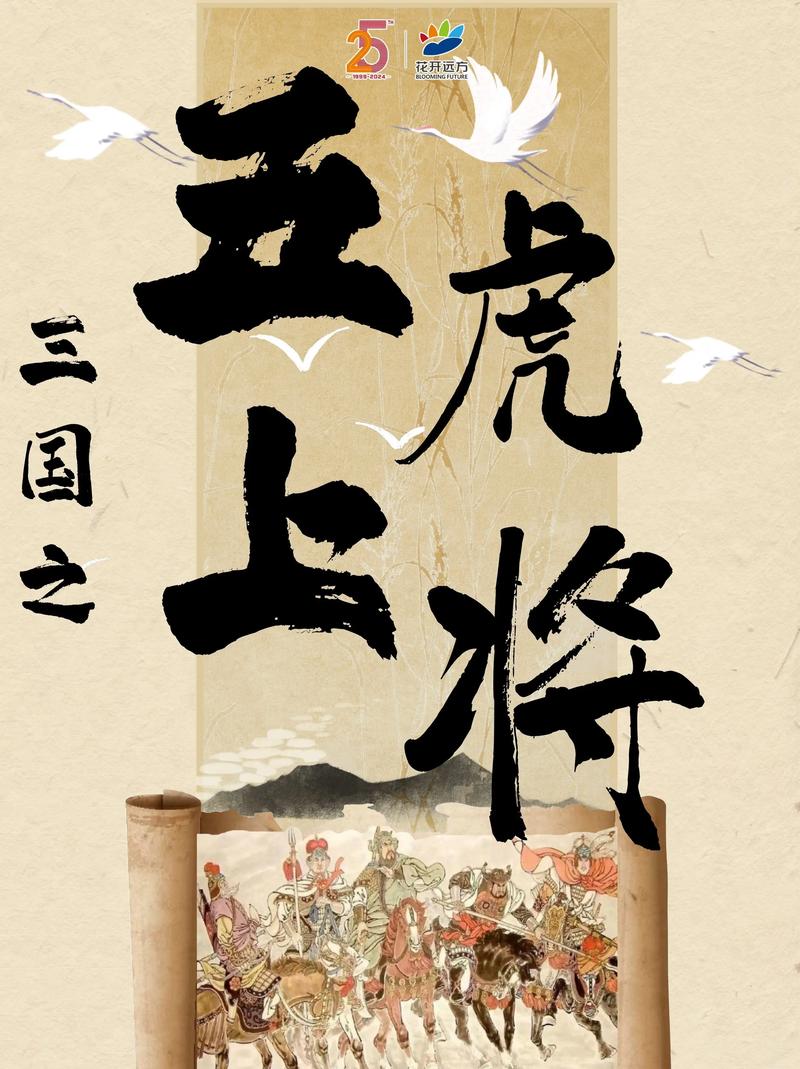 25TH
1999-2024
花开远方
BLOOMING FUTURE
三国之
五虎
上将